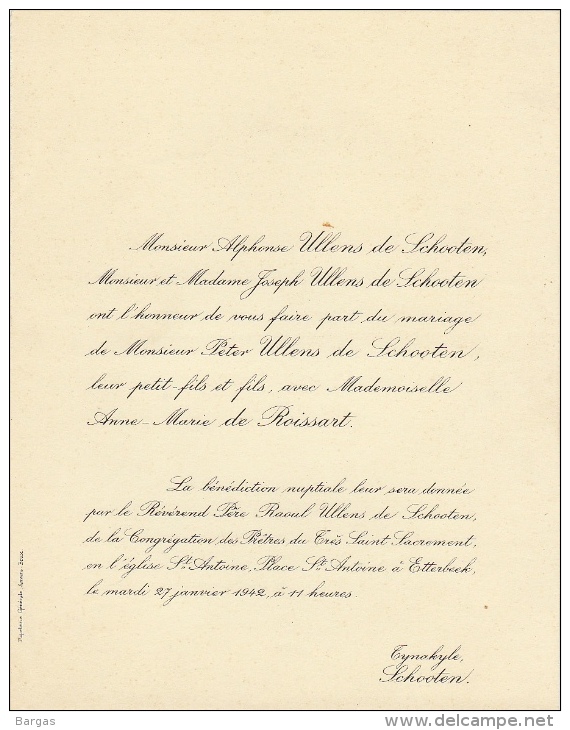 Monsieur Alphonse Ullens de Schooten,
Monsieur et Madame Joseph Ullens de Schooten
ont l'honneur de vous faire part du mariage
de Monsieur Peter Ullens de Schooten,
leur petit-fils et fils, avec Mademoiselle
Anne-Marie de Roissart.
La bénédiction nuptiale leur sera donnée
par le Révérend Père Raoul Ullens de Schooten,
de la Congrégation des Prêtres du Très Saint Sacrement,
en l'église St. Antoine, Place St. Antoine à Etterbeek,
le mardi 27 janvier 1942, à 11 heures.
Tynakyle,
Schooten.
Bargas
delcampe.net